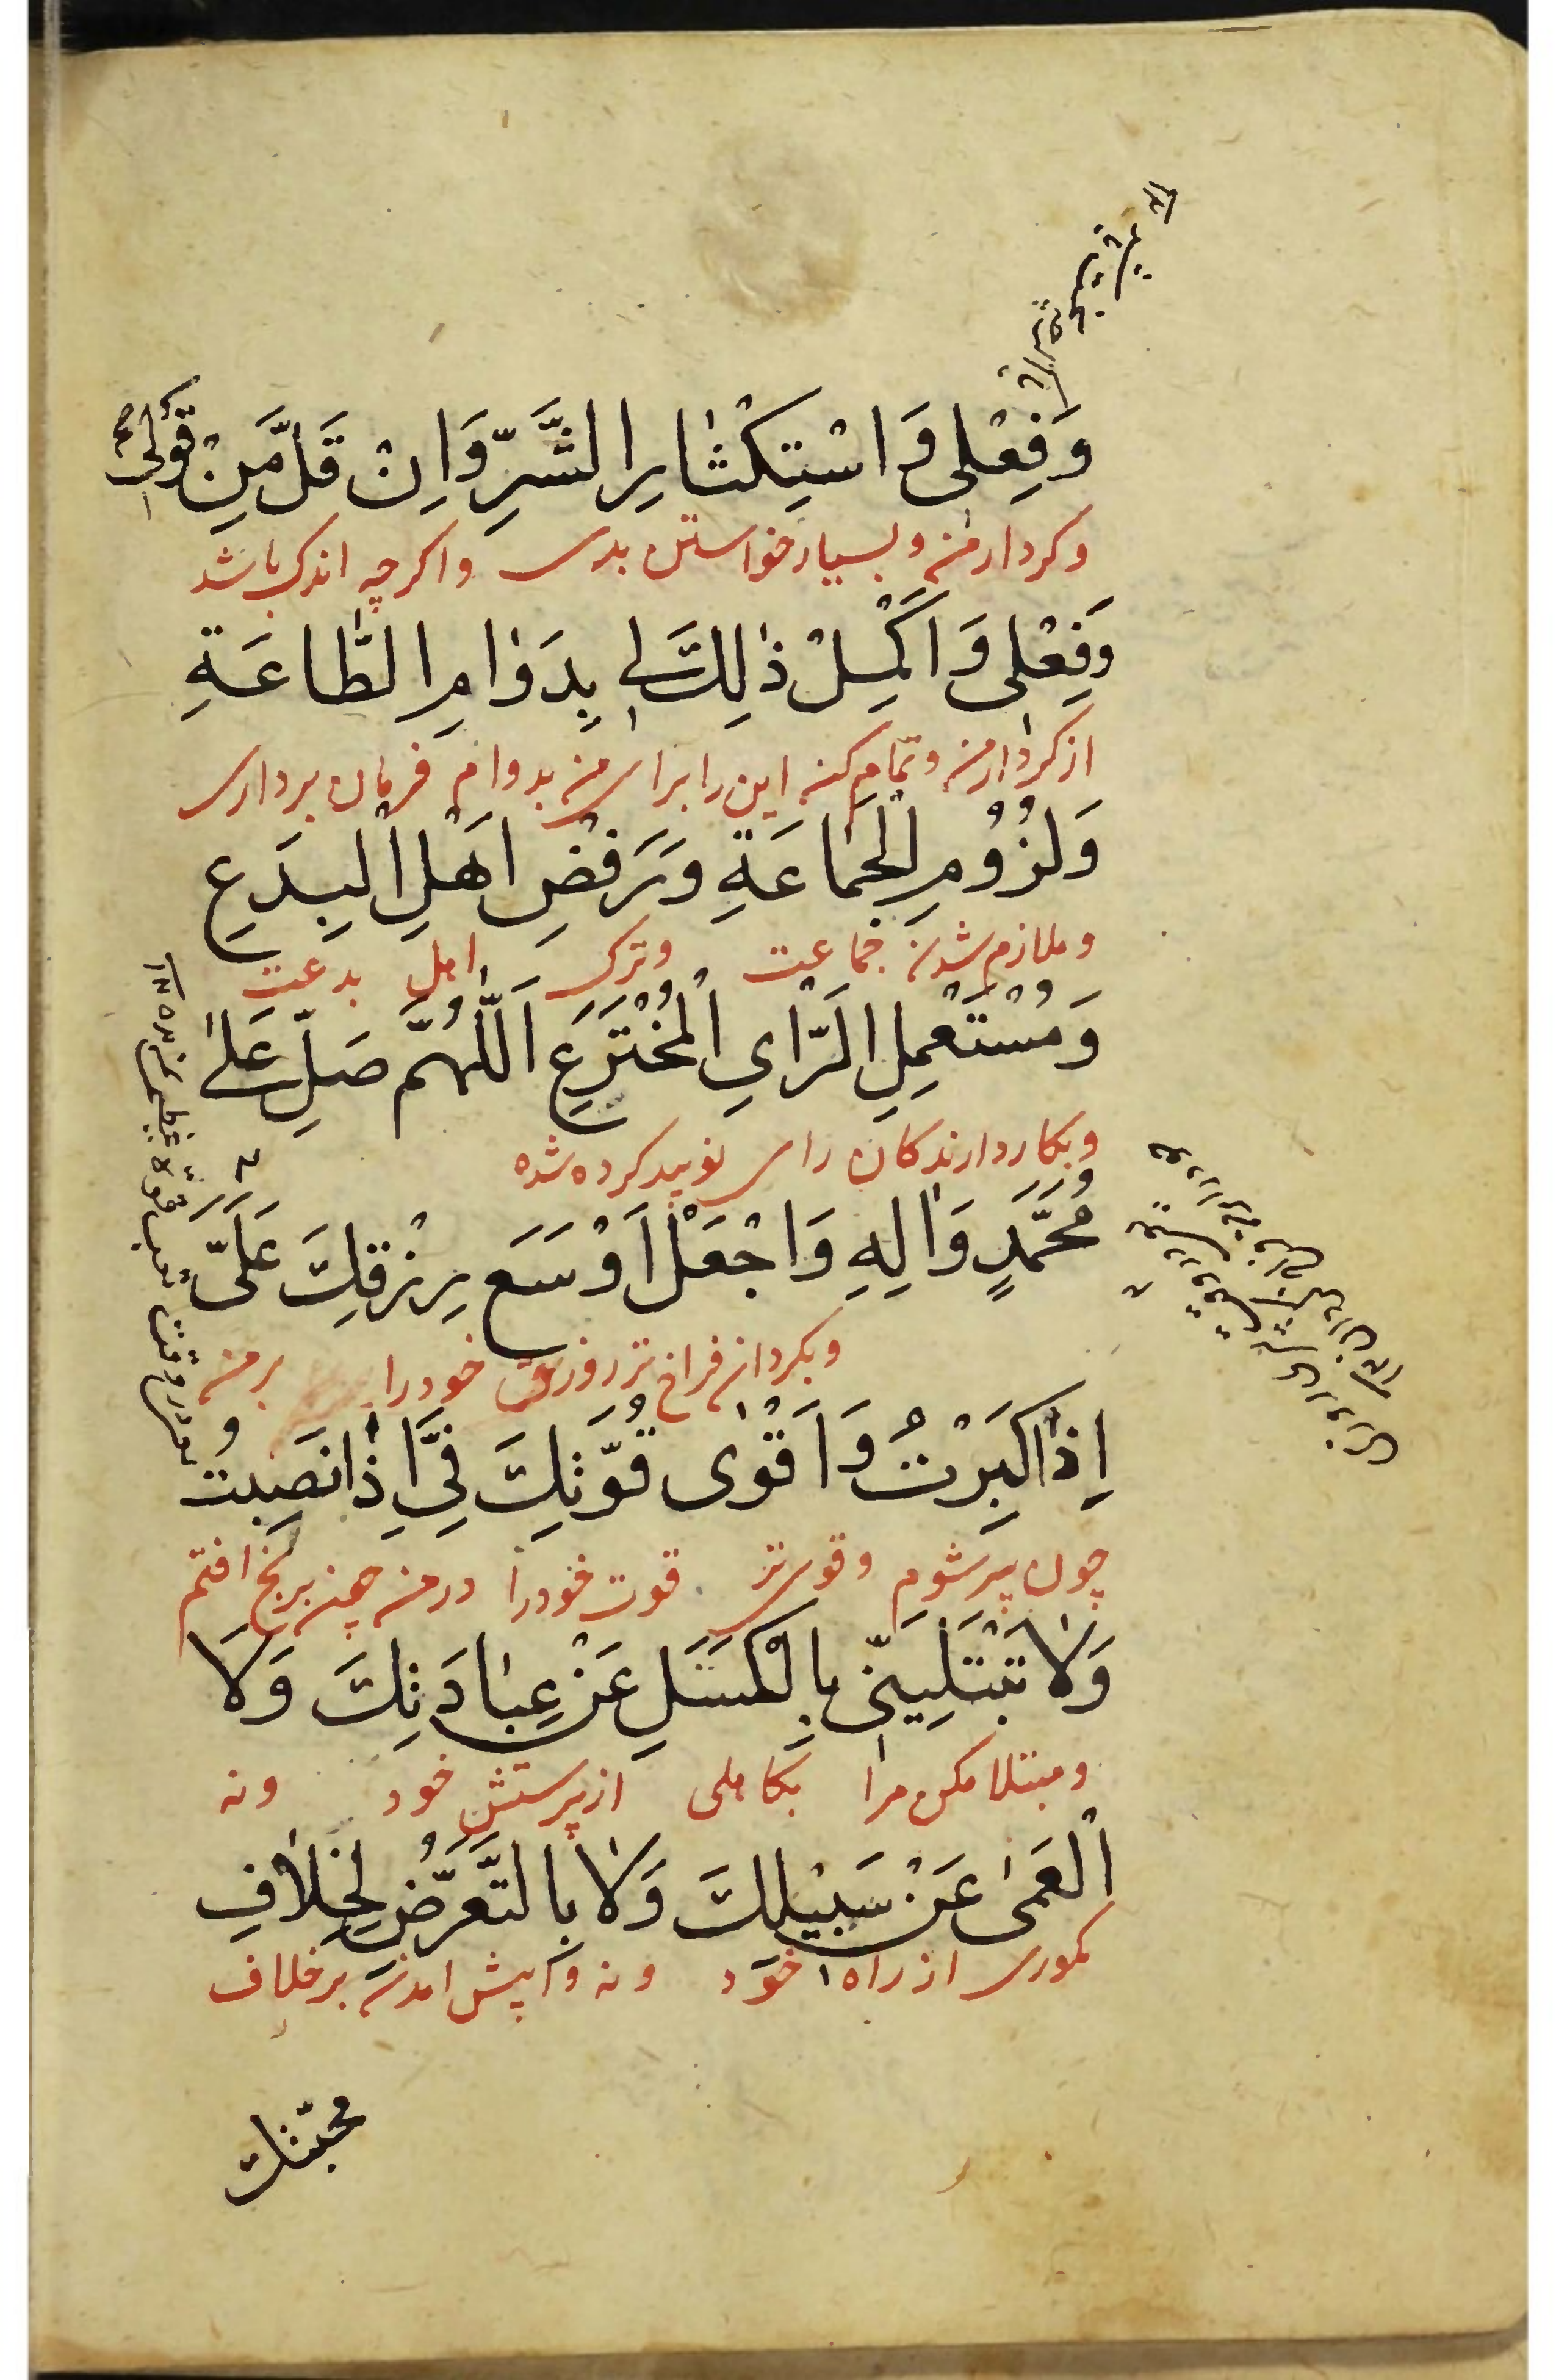 وَفِعْلِی وَاسْتِكْثٰارِ الشَّرِّ وَاِنْ قَلَّ مِنْ قَوْلِی
وکردار من وبسیار خواستن بدی واکرچه اندک باشد
وَفِعْلِی وَاَكْمِلْ ذٰلِكَ لِی بِدَوٰامِ الطّٰاعَةِ
از کردار من وتمام کن این را برای من بدوام فرمان برداری
وَلُزُوْمِ الْجَمٰاعَةِ وَرَفْضِ اَهْلِ الْبِدَعِ
وملازم شدن جماعت وترک اهل بدعت
وَمُسْتَعْمِلِ الرَّاىِ الْمُخْتَرَعِ اَللّٰهُمَّ صَلِّ عَلىٰ
وبکار دارندکان رای نوپید کرده شده
مُحَمَّدٍ وَاٰلِهِ وَاجْعَلْ اَوْسَعَ رِزْقِكَ عَلَىَّ
وبکردان فراخ تر روزی خود را بر من
اِذٰا كَبِرْتُ وَاَقْوٰى قُوَّتِكَ فِىَّ اِذٰا نَصِبْتُ
چون پیر شوم وقوی تر قوت خود را در من چون برنج افتم
وَلٰا تَبْتَلِیَنّی بِالْكَسَلِ عَنْ عِبٰادَتِكَ وَلَا
ومبتلا مکن مرا بکاهلی از پرستش خود ونه
الْعَمىٰ عَنْ سَبیْلِكَ وَلٰا بِالتَّعَرُّضِ لِخِلٰافِ
بکوری از راه خود ونه واپیش امدن بر خلاف
محبّتك